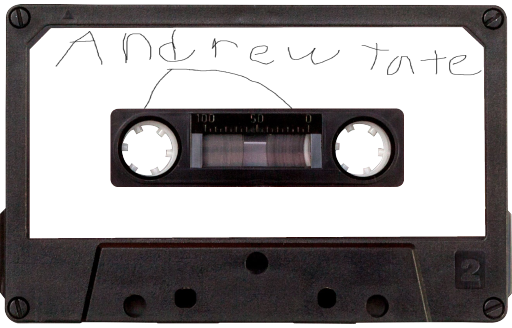 Andrew Tate
100 50 0
2